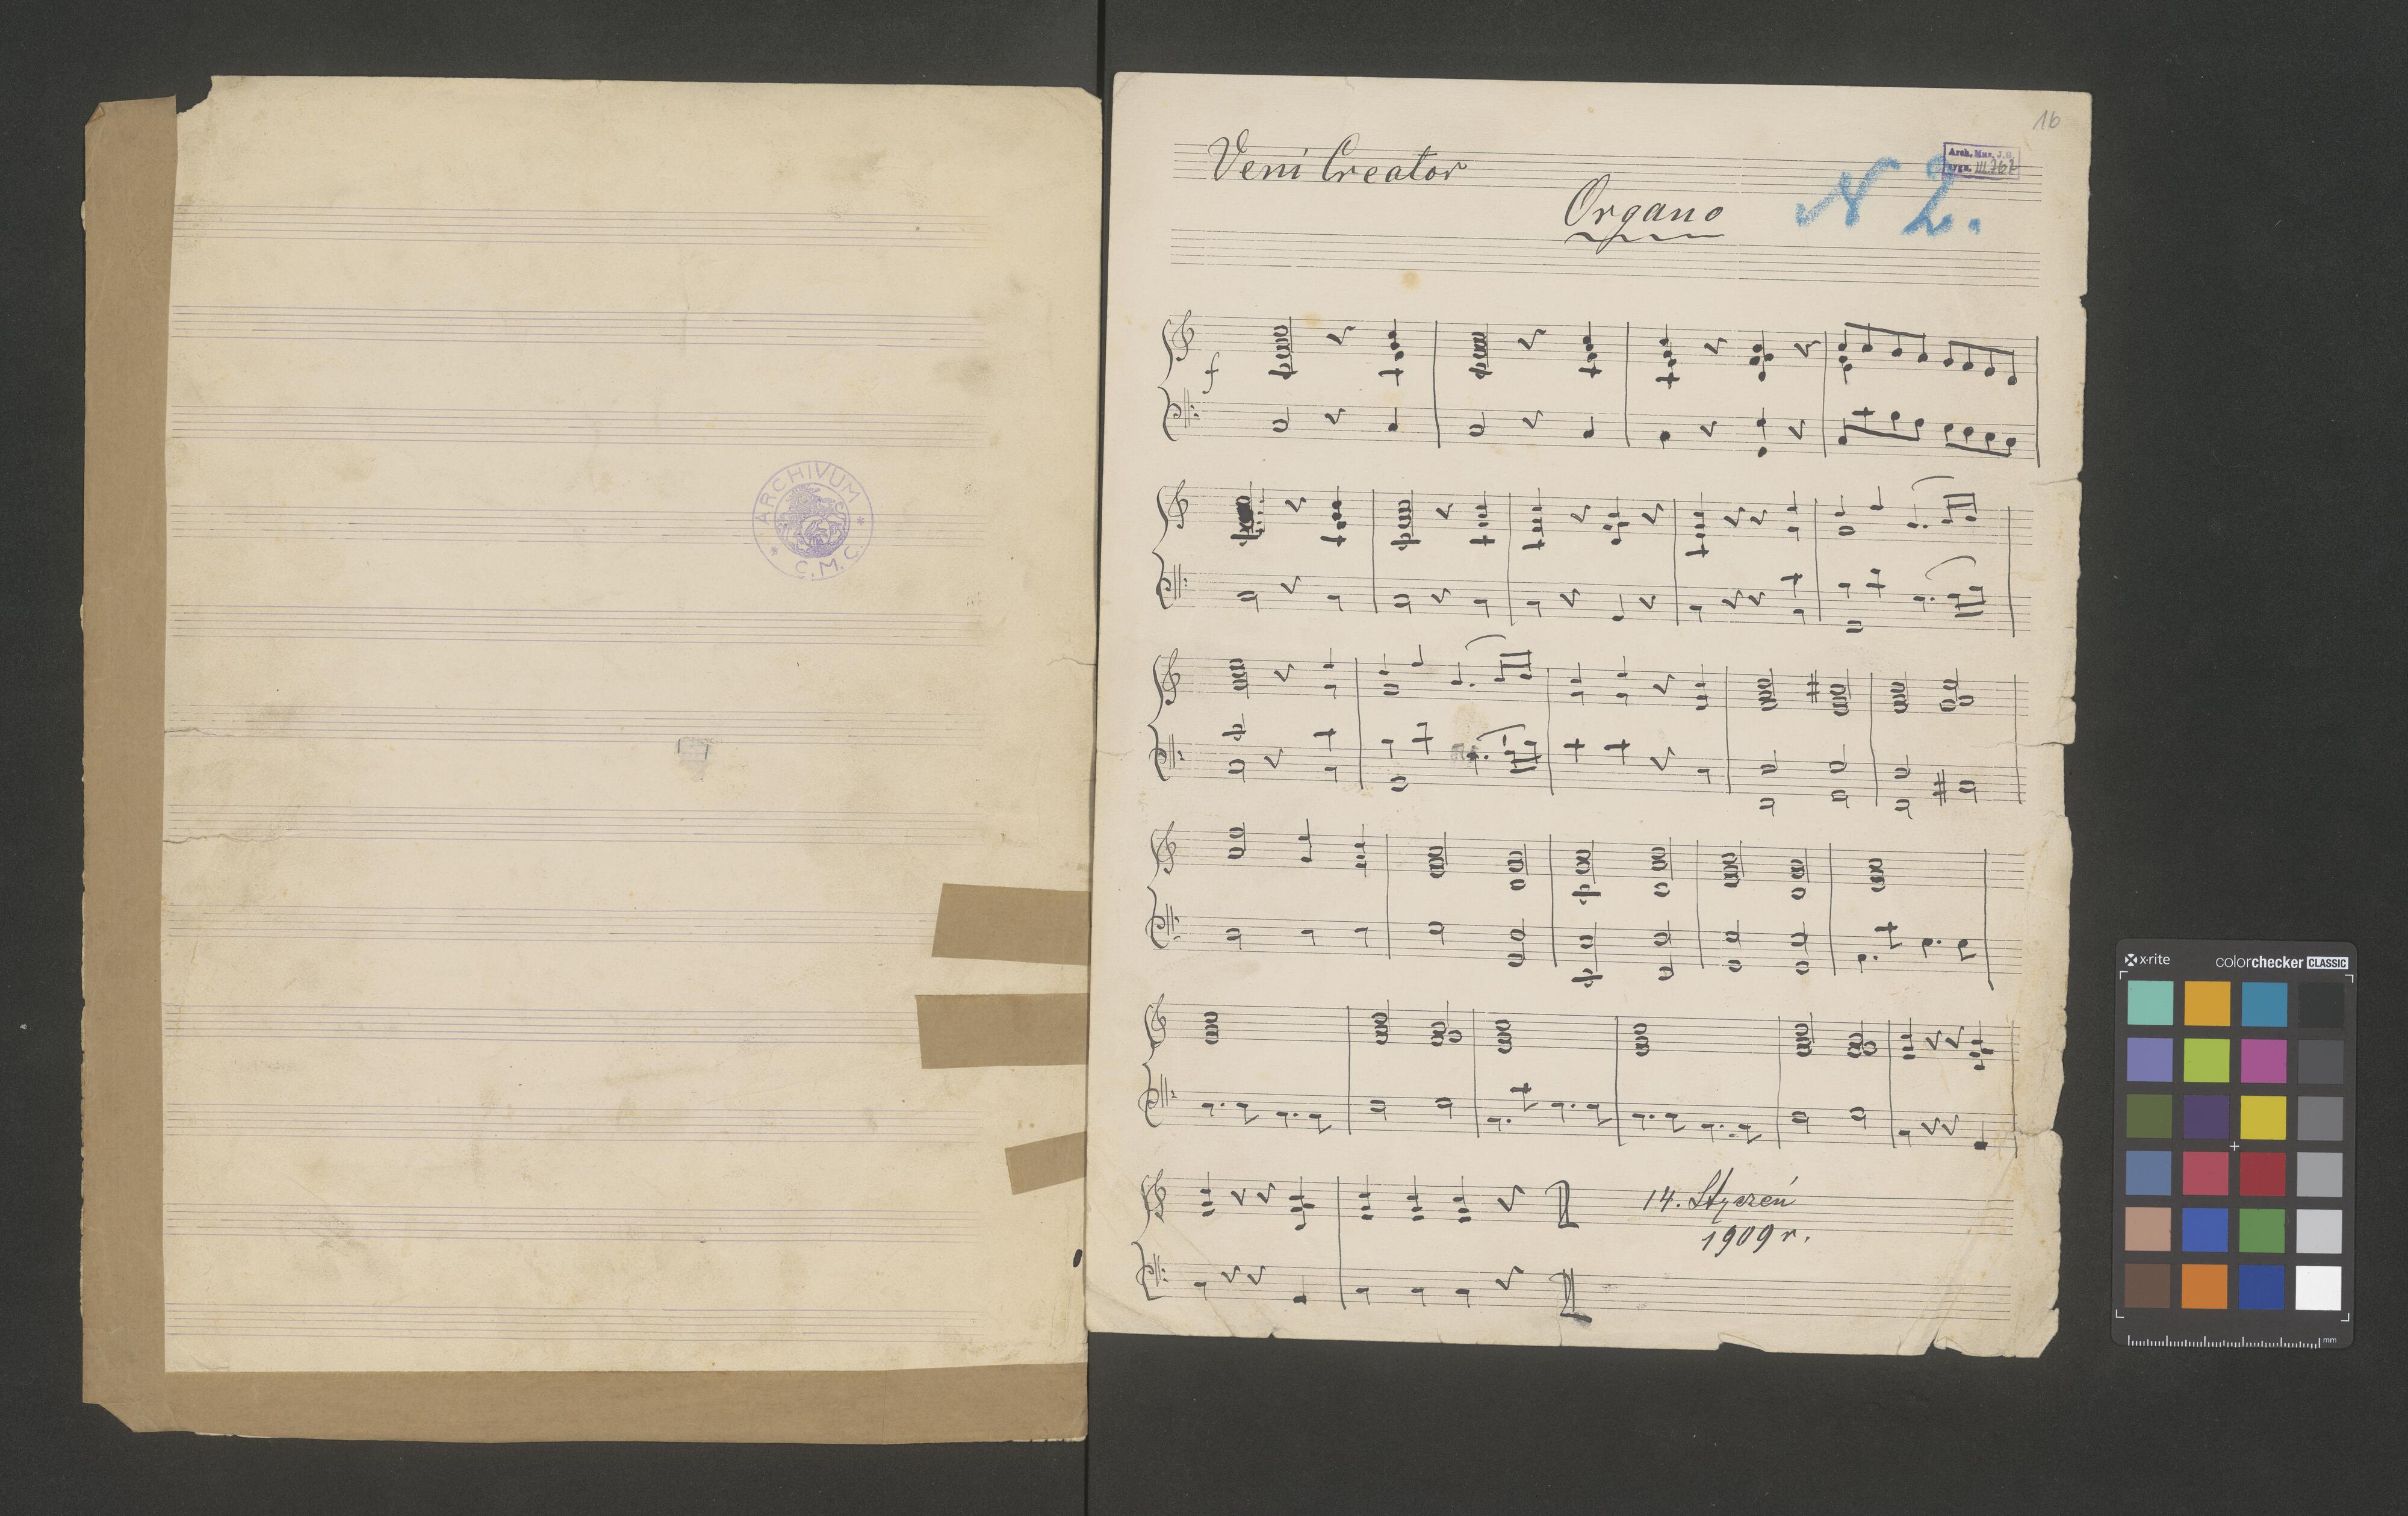 ARCHIVUM
* C.M.C. *
16
Veni Creator
Organo
N 2.
Arch. Mus. J. G.
sygn. III 762
f
14. Styczeń
1909 r.
x-rite
colorchecker CLASSIC
mm